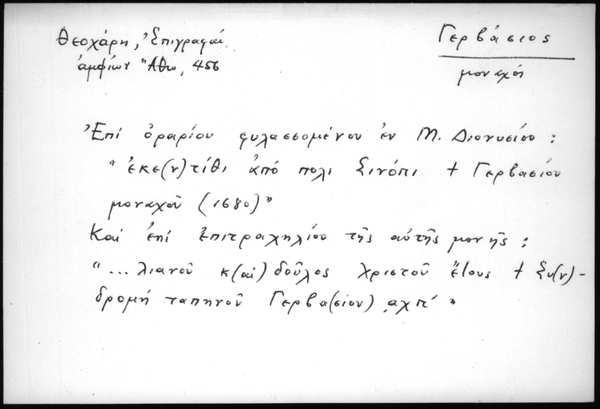 Θεοχάρη, Ἐπιγραφαί
Γερβάσιος
ἀμφίων Ἄθω, 456
μοναχός
Ἐπί ὀραρίου φυλασσομένου ἐν Μ. Διονυσίου :
"ἐκε(ν)τίθι ἀπό πολι Σινόπι + Γερβασίου
μοναχοῦ (1680)"
Καί ἐπί ἐπιτραχηλίου τῆς αὐτῆς μονῆς :
"... λιανοῦ κ(αί) δοῦλος Χριστοῦ ἔτους + Συ(ν)-
δρομή ταπηνοῦ Γερβα(σίου) ͵αχπ́ "